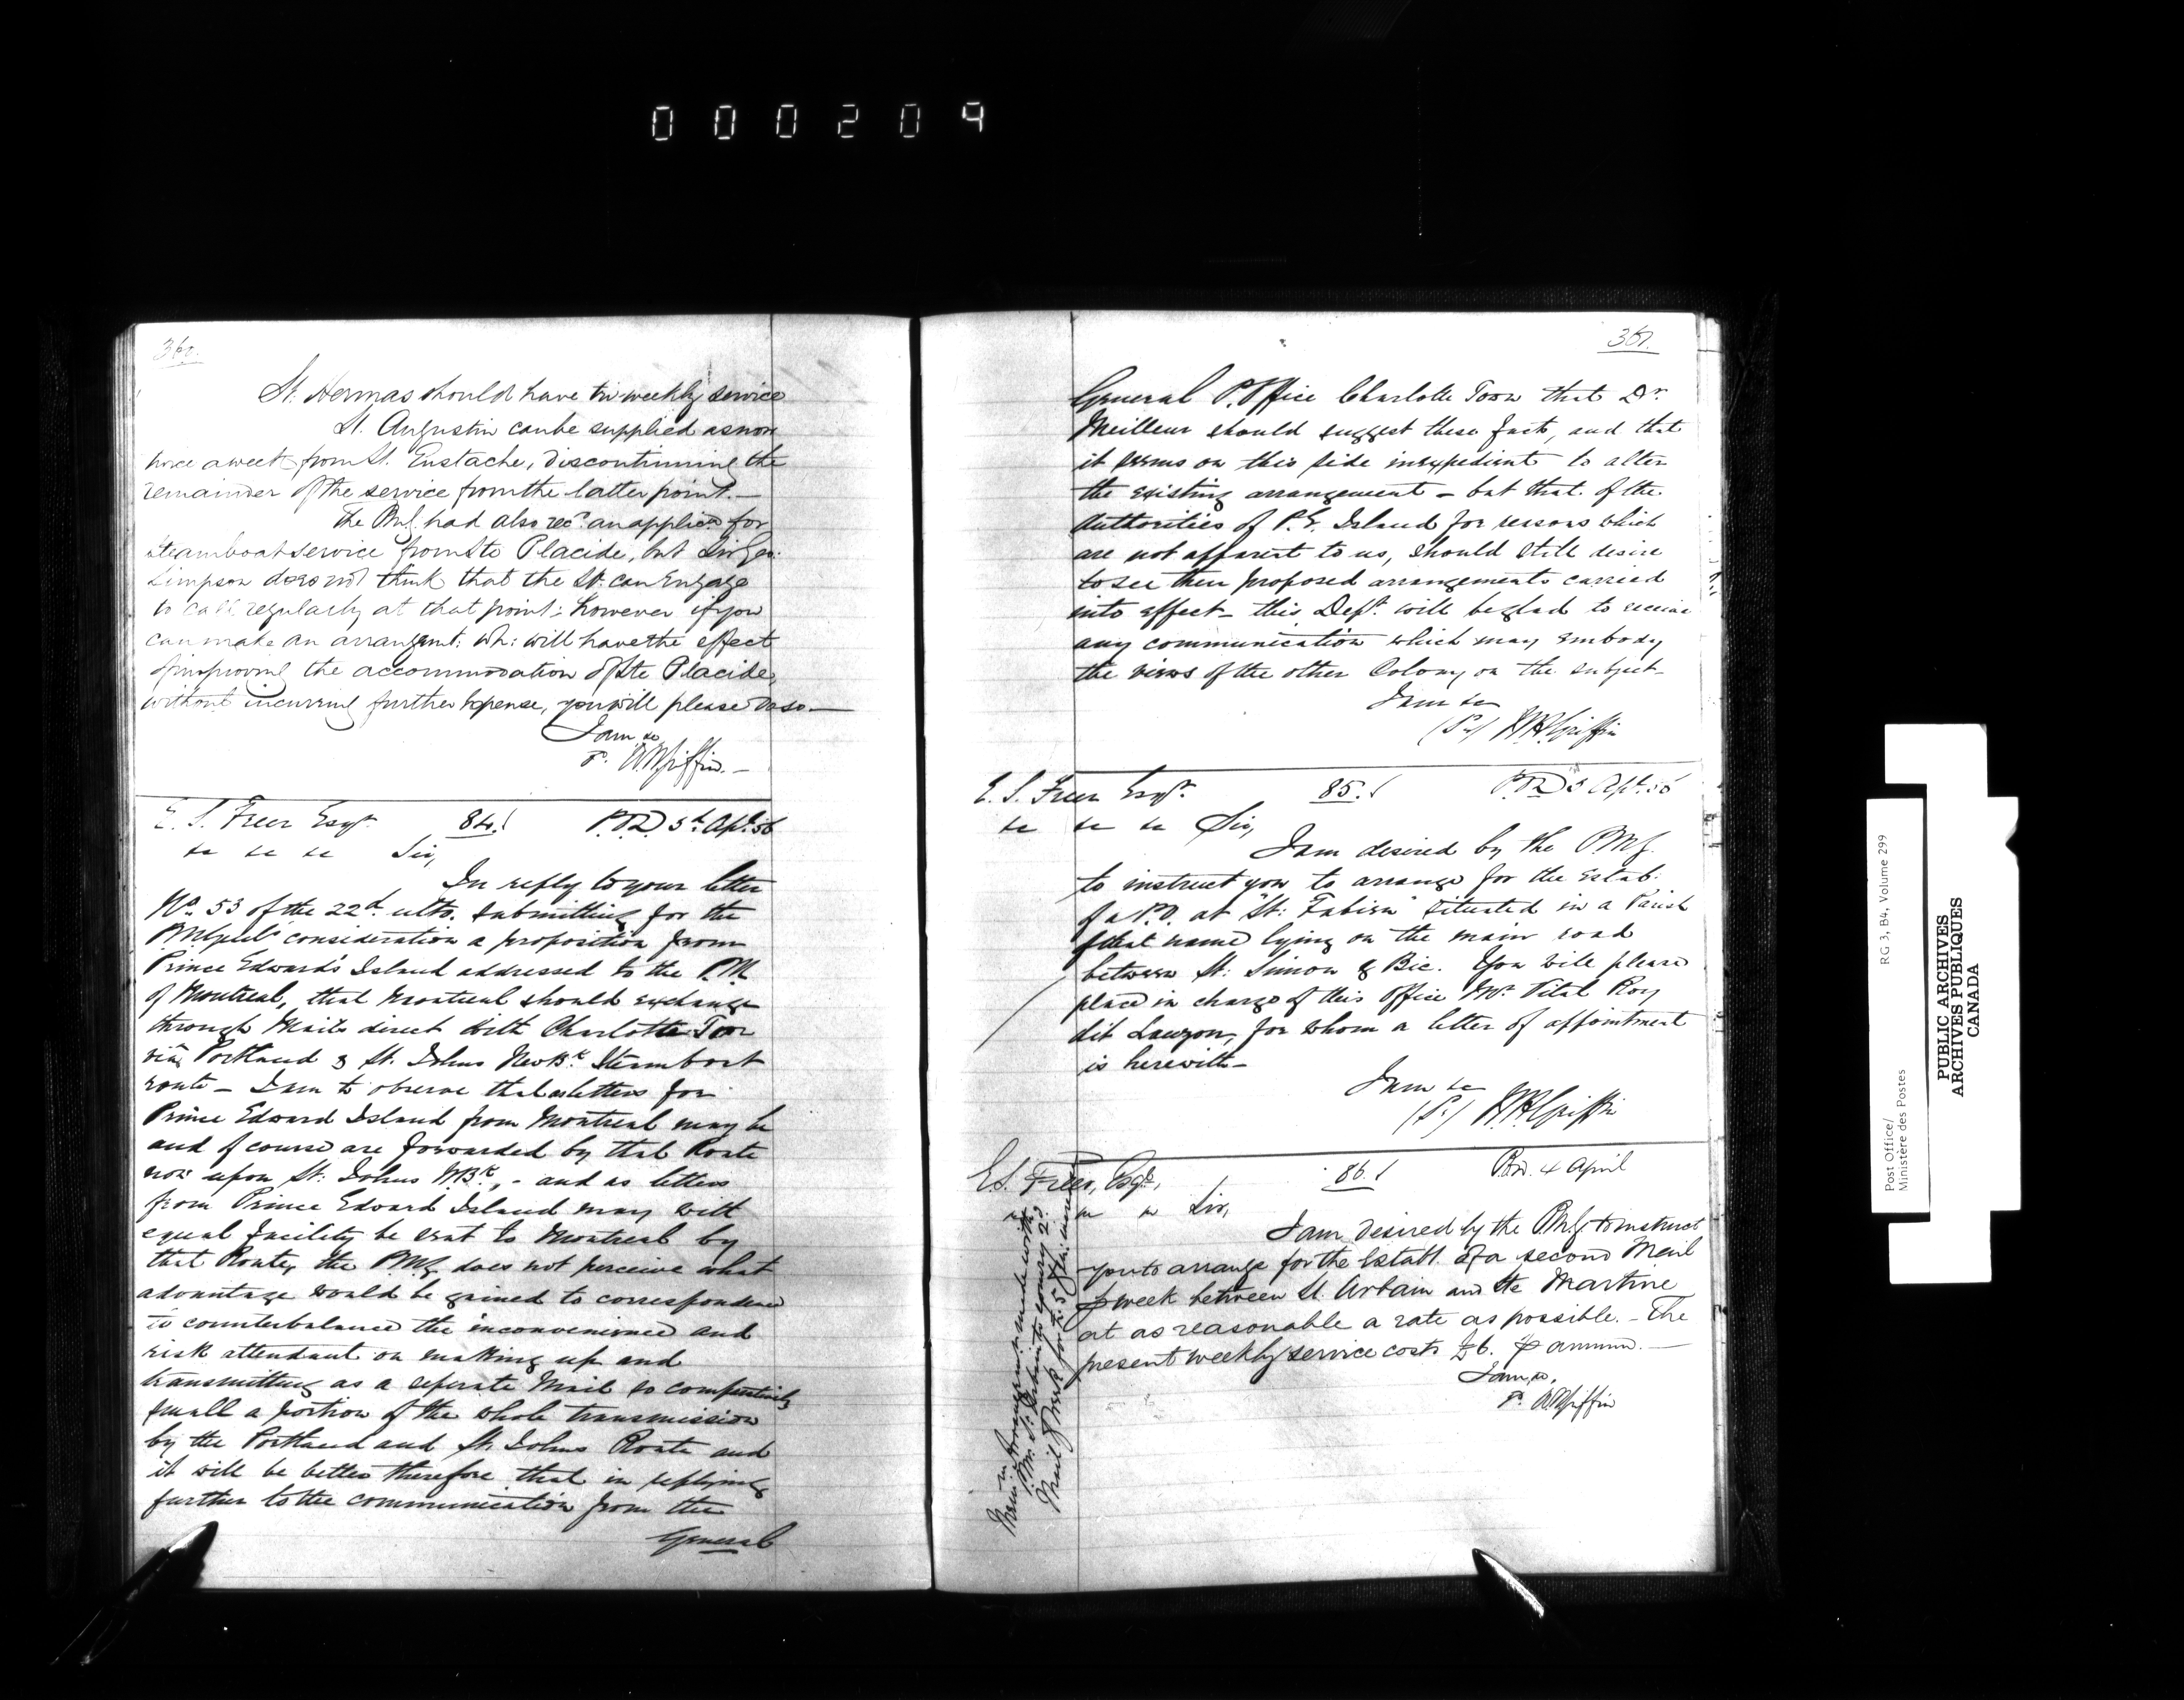 000209
360.
St. Hermas should have tri-weekly service
St. Augustin can be supplied as now
twice a week from St. Eustache, discontinuing the
remainder of the service from the latter point. —
The PMG. had also recd. an applicn for
steamboat service from Ste Placide, but Sir Geo:
Simpson does not think that the St. can engage
to call regularly at that point: however if you
can make an arrangemt: wh: will have the effect
of improving the accommodation of Ste Placide,
without incurring further expense, you will please do so. —
I am &c
W H Griffin. —
E. S. Freer Esqr. 84. P.O.D. 5th Apl. 56
&c &c &c Sir,
In reply to your letter
No. 53 of the 22d. ulto. submitting for the
consideration a proposition from
Prince Edward's Island addressed to the P.M.
of Montreal, that Montreal should exchange
through Mails direct with Charlotte Town
via Portland & St. Johns New Bk. Steamboat
route — I am to observe that as letters for
Prince Edward Island from Montreal may be
and of course are forwarded by that Route
now upon St: Johns N.Bk., - and as letters
from Prince Edward Island may with
equal facility be sent to Montreal by
that Route, the P.M.G. does not perceive what
advantage would be gained to correspondence
to counterbalance the inconvenience and
risk attendant on making up and
transmitting as a seperate Mail so comparatively
small a portion of the whole transmission
by the Portland and St. Johns Route and
it will be better therefore that in replying
further to the communication from the
General
361.
General P. Office Charlotte Town that Dr.
Meilleur should suggest these facts, and that
it seems on this side inexpedient to alter
the existing arrangement — but that if the
Authorities of P.E. Island for reasons which
are not apparent to us, should still desire
to see their proposed arrangements carried
into effect — this Dept. will be glad to receive
any communication which may embody
the views of the other Colony on the subject —
I am &c
W H Griffin
E. S. Freer Esqr. 85. P.O.D. 5 Apl. 56
&c &c &c Sir,
I am desired by the P.M.G.
to instruct you to arrange for the Estab:
of a P.O. at "St: Fabien" situated in a Parish
of that name lying on the main road
between St: Simon & Bic. You will please
place in charge of this Office Mr. Vital Roy
dit Lauzon, for whom a letter of appointment
is herewith —
I am &c
W H Griffin
E. S. Freer, Esqr, 86. P.O.D. 4 April
Sir,
I am desired by the P.M.G. to instruct
you to arrange for the Establt. of a second Mail
week between St. Urbain and Ste Martine
at as reasonable a rate as possible. — The
present weekly service costs £6. annum. —
I am &c.
W H Griffin
arrangement made with
P.M. St. Urbain to convey 2d.
Mail week for
Post Office/ RG 3, B4, Volume 299
Ministère des Postes
PUBLIC ARCHIVES
ARCHIVES PUBLIQUES
CANADA